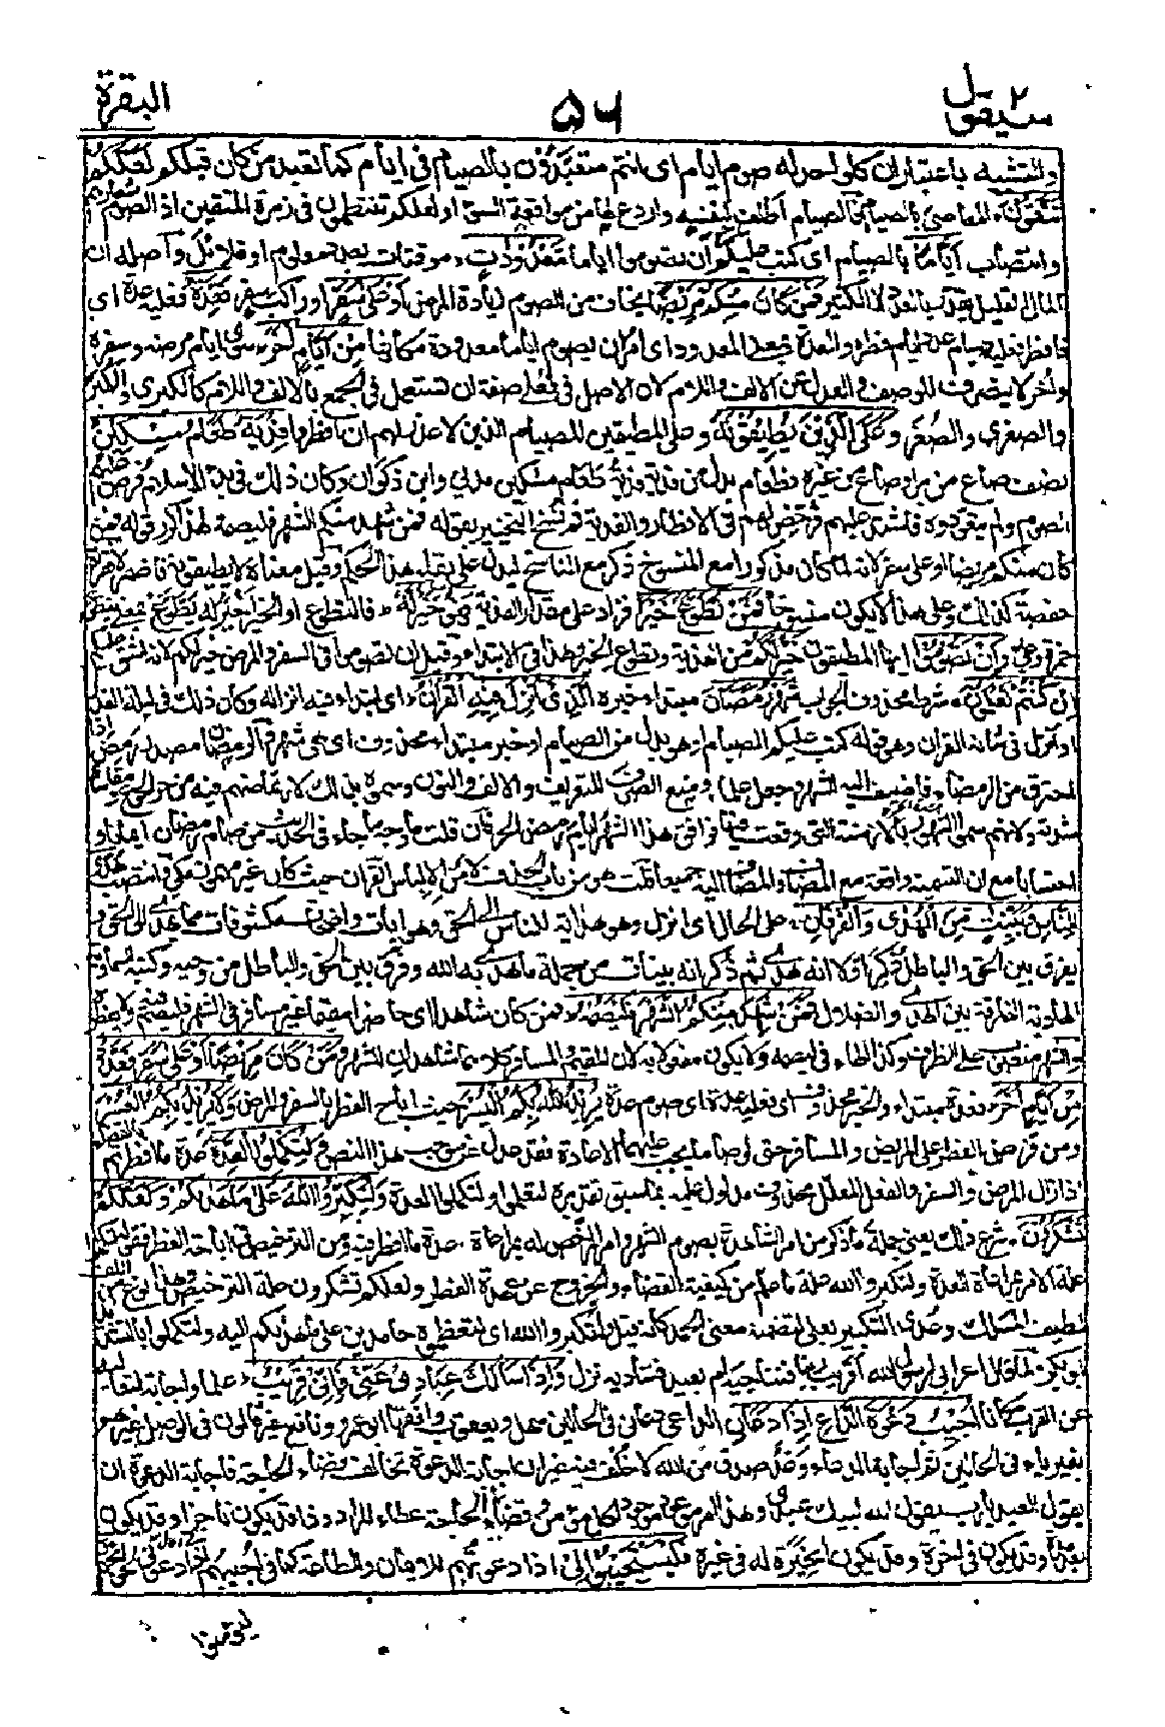 سيقول ٢
٥٦
البقرة
والتشبيه باعتبار ان كل واحد له صوم ايام اى انتم متعبدون بالصيام فى ايام كما تعبد من كان قبلكم لعلكم
تتقون المعاصى بالصيام لان الصيام أظلف لنفسه واردع لها من مواقعة السوء او لعلكم تنتظمون فى زمرة المتقين اذ الصوم شعارهم
وانتصاب أياما بالصيام اى كتب عليكم أن تصوموا اياما معدودت موقتات بعدد معلوم او قلائل وأصله ان
المال القليل يقدر بالعدد لا الكثير فمن كان منكم مريضا يخاف من الصوم زيادة المرض أو على سفر او راكب سفر فعدة فعليه عدة اى
فافطر فعليه صيام عدد ايام فطره والعدة بمعنى المعدود اى امر ان يصوم اياما معدودة مكانها من أيام أخر سوى ايام مرضه وسفره
وأخر لا ينصرف للوصف والعدل عن الالف واللام لان الاصل فى فعلى صفة ان تستعمل فى الجمع بالالف واللام كالكبرى والكبر
والصغرى والصغر وعلى الذين يطيقونه وعلى المطيقين للصيام الذين لا عذر لهم ان افطروا فدية طعام مسكين
نصف صاع من بر او صاع من غيره فطعام بدل من فدية فدية طعام مسكين مدنى وابن ذكوان وكان ذلك فى بدء الاسلام فرض عليهم
الصوم ولم يتعودوه فاشتد عليهم فرخص لهم فى الافطار والفدية ثم نسخ التخيير بقوله فمن شهد منكم الشهر فليصمه لهذا كرر قوله فمن
كان منكم مريضا او على سفر لانه لما كان مذكورا مع المنسوخ ذكر مع الناسخ ليدل على بقاء هذا الحكم وقيل معناه لا يطيقونه فاضمر لا لقراءة
حفصة كذلك وعلى هذا لا يكون منسوخا فمن تطوع خيرا فزاد على مقدار الفدية فهو خير له فالتطوع او الخير خير له يطوع بمعنى يتطوع
حمزة وعلى وأن تصوموا ايها المطيقون خير لكم من الفدية وتطوع الخير وهذا فى الابتداء وقيل ان تصوموا فى السفر والمرض خير لكم لانه اشق عليكم
إن كنتم تعلمون شرط محذوف الجواب شهر رمضان مبتدأ خبره الذى أنزل فيه القرآن اى ابتدئ فيه انزاله وكان ذلك فى ليلة القدر
او انزل فى شانه القران وهو قوله كتب عليكم الصيام او هو بدل من الصيام او خبر مبتدأ محذوف اى هى شهر والرمضان مصدر رمض اذا
احترق من الرمضاء فاضيف اليه الشهر وجعل علما ومنع الصرف للتعريف والالف والنون وسموه بذلك لارتماضهم فيه من حر الجوع ومقاساة
شدته ولانهم سموا الشهور بالازمنة التى وقعت فيها فوافق هذا الشهر ايام رمض الحر فان قلت ما وجه ما جاء فى الحديث من صام رمضان ايمانا و
احتسابا مع ان التسمية واقعة مع المضاف والمضاف اليه جميعا قلت هو من باب الحذف لامن الالباس القران حيث كان غير مهموز مكى وانتصب هدى
للناس وبينت من الهدى والفرقان على الحال اى انزل وهو هداية للناس الى الحق وهو ايات واضحات مكشوفات مما يهدى الى الحق و
يفرق بين الحق والباطل ذكر اولا انه هدى ثم ذكر انه بينات من جملة ما هدى به الله وفرق بين الحق والباطل من وحيه وكتبه السماوية
الهادية الفارقة بين الهدى والضلال فمن شهد منكم الشهر فليصمه فمن كان شاهدا اى حاضرا مقيما غير مسافر فى الشهر فليصم فيه ولا يفطر
والشهر منصوب على الظرف وكذا الهاء فى ليصمه ولا يكون مفعولا به لان المقيم والمسافر كلاهما شاهدان للشهر ومن كان مريضا أو على سفر فعدة
من أيام أخر فعدة مبتدأ والخبر محذوف اى فعليه عدة اى صوم عدة يريد الله بكم اليسر حيث اباح الفطر بالسفر والمرض ولا يريد بكم العسر
ومن فرض الفطر على المريض والمسافر حتى لو صاما يجب عليهما الاعادة فقد عدل عن موجب هذا النص ولتكملوا العدة عدة ما افطرتم بالقضاء
اذا زال المرض والسفر والفعل المعلل محذوف مدلول عليه بما سبق تقديره لتعلموا ولتكملوا العدة ولتكبروا الله على ما هدىكم ولعلكم
تشكرون شرع ذلك يعنى جملة ما ذكر من امر الشاهد بصوم الشهر وامر المرخص له بمراعاة عدة ما افطر فيه ومن الترخيص فى اباحة الفطر فقوله لتكملوا
علة الامر بمراعاة العدة ولتكبروا الله علة ما علم من كيفية القضاء والخروج عن عهدة الفطر ولعلكم تشكرون علة الترخيص وهذا نوع من اللف
اللطيف المسلك وعدى التكبير بعلى لتضمنه معنى الحمد كانه قيل ولتكبروا الله اى لتعظموه حامدين على ما هدىكم اليه ولتكملوا بالتشديد
ابو بكر ولما قال اعرابى لرسول الله أقريب ربنا فنناجيه ام بعيد فنناديه نزل وإذا سألك عبادى عنى فإنى قريب علما واجابة لتعاليه
عن القرب مكانا أجيب دعوة الداع إذا دعان الداعى دعانى فى الحالين سهل ويعقوب وافقهما ابو عمرو ونافع غير قالون فى الوصل غيرهم
بغير ياء فى الحالين ثم اجابة الدعاء وعد صدق من الله لا خلف فيه غير ان اجابة الدعوة تخالف قضاء الحاجة فاجابة الدعوة ان
يقول العبد يارب فيقول الله لبيك عبدى وهذا امر موعود موجود لكل مؤمن وقضاء الحاجة اعطاء المراد وذا قد يكون ناجزا وقد يكون
بعد مدة وقد يكون فى الاخرة وقد يكون الخيرة له فى غيره فليستجيبوا لى اذا دعوتهم للايمان والطاعة كما انى اجيبهم اذا دعونى لحوائجهم
ليؤمنوا